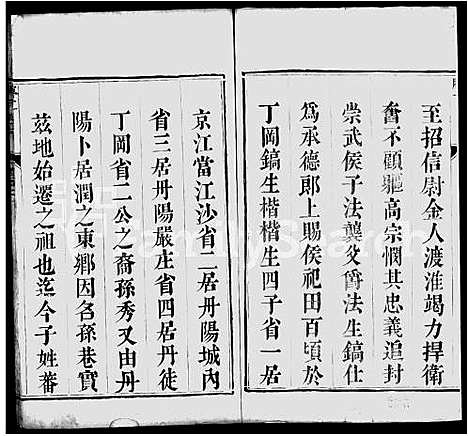 至招信尉金人渡淮竭力捍衛
奮不顧軀高宗憫其忠義追封
崇武侯子法龔父爵法生鎬仕
為承德郎上賜侯祀田百頃於
丁岡鎬生楷楷生四子省一居
京江當江沙省二居丹陽城內
省三居丹陽嚴庄省四居丹徒
丁岡省二公之裔孫秀又由丹
陽卜居潤之東鄉因名孫巷寔
茲地始遷之祖也迄今子姓蕃
FamilySearch